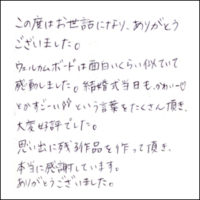 この度はお世話になり、ありがとう
ございました。
ウェルカムボードは面白いくらい似ていて
感動しました。結婚式当日も、かわいー♡
とかすごーい!!という言葉をたくさん頂き、
大変好評でした。
思い出に残る作品を作って頂き、
本当に感謝しています。
ありがとうございました。